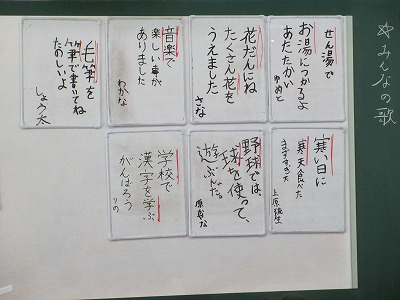 みんなの歌
せん湯で
お湯につかるよ
あたたかい
ゆめと
花だんにね
たくさん花を
うえました
さな
音楽で
楽しい事が
ありました
わかな
毛筆を
筆で書いてね
たのしいよ
しょう太
寒い日に
寒天食べた
上原
野球では、
球を使って、
遊ぶんだ。
学校で
漢字を学ぶ
がんばろう
りの